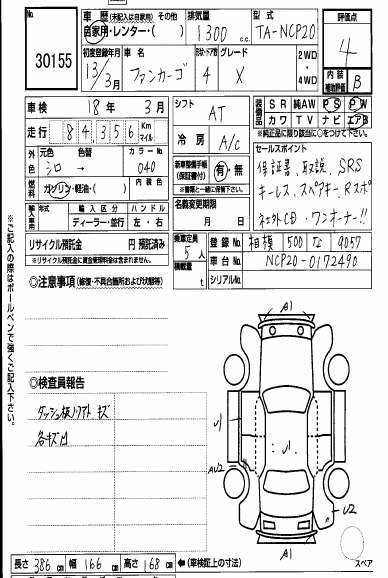 No.
30155
車歴 (未記入は自家用) その他
自家用・レンター・( )
排気量
1300 c.c.
型式
TA-NCP20
評価点
4
内装 補助評価
B
初度登録年月
13/3月
車名
ファンカーゴ
ドア・ドア
4
グレード
X
2WD
・
4WD
車検 18年 3月
シフト AT
装備品
SR 純AW PS PW
カワ TV ナビ エアB
※純正品に限り該当に○をつけて下さい。
走行 84,356 Km マイル
冷房 A/C
セールスポイント
保証書、取説、SRS
キーレス、スペアキー、Rスポ
社外CD・ワンオーナー!!
外色
元色 色替 カラーNo.
シロ → 040
新車整備手帳 (保証書) 有・無
※書類と一緒に保管して下さい。
燃料 ガソリン・軽油・( ) 内装色
名義変更期限
月 日
輸入車用
輸入区分 ハンドル
ディーラー・並行 左・右
リサイクル預託金 円 預託済み
※リサイクル預託金に資金管理料金は含まれません。
乗車定員 5人
積載量 t
登録No. 相模 500 な 9057
車台No. NCP20-0172490
シリアルNo.
◎注意事項 (修復・不具合箇所および欠格等)
※ご記入の際はボールペンで強くご記入下さい。
◎検査員報告
ダッシュ板リフト キズ
各キズ凹
A1
U1
U1
AU2
U2
A1
スペア
長さ 386cm 幅 166cm 高さ 168cm ←(車検証上の寸法)